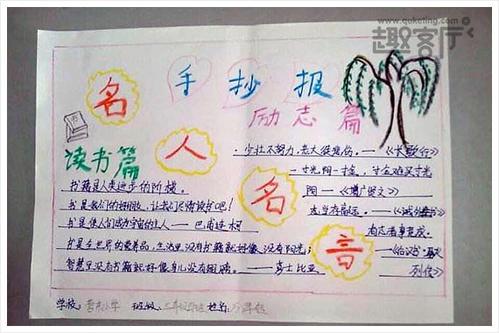 趣客厅
www.quketing.com
手抄报
名人名言
励志篇
读书篇
少壮不努力,老大徒伤悲。—《长歌行》
一寸光阴一寸金,寸金难买寸光
阴—《增广贤文》
书籍是人类进步的阶梯。
书是我们的好朋友,让我们尽情读书吧!
书是使人们成为宇宙的主人——巴甫连柯
有志者事竟成。
书是全世界的营养品,生活里没有书籍就好像没有阳光;
智慧里没有书籍就好像鸟儿没有翅膀。——莎士比亚
列传》
学校:
小学
班级:
姓名: